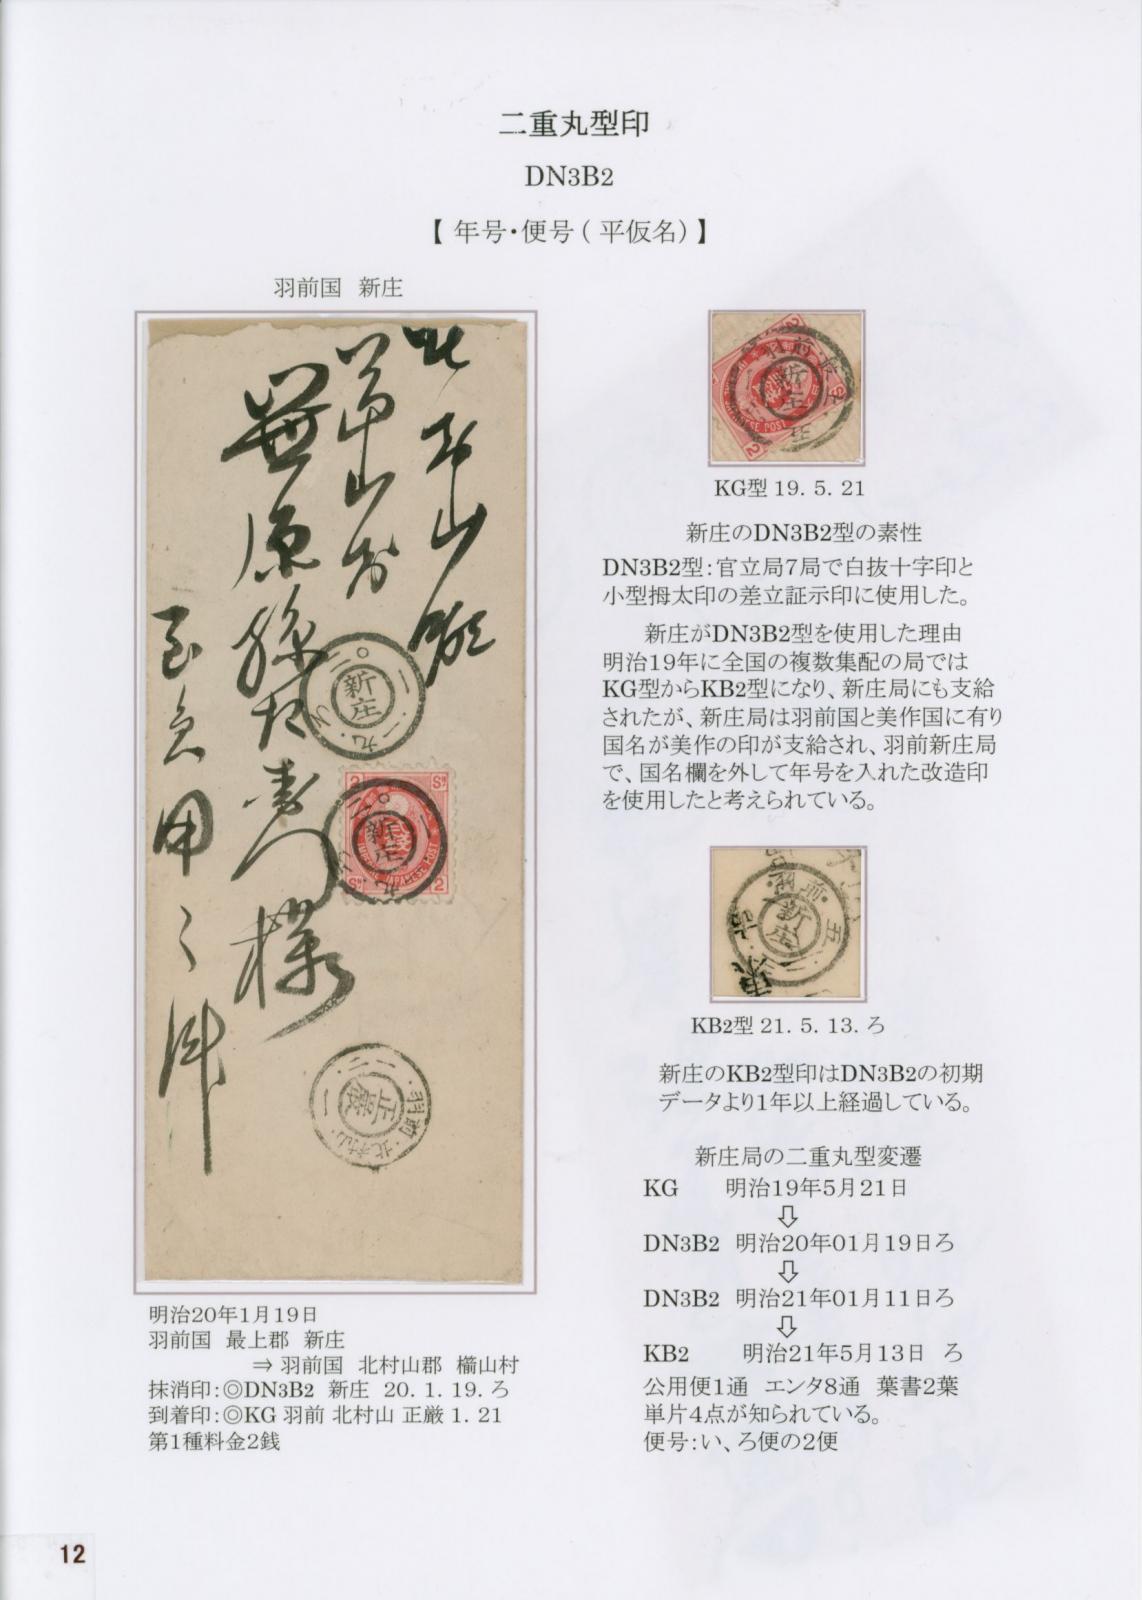 二重丸型印
DN3B2
【 年号・便号 ( 平仮名) 】
羽前国 新庄
様
新庄
新庄
2 Sn
Sn 2
羽前・北村山
正厳
明治20年1月19日
羽前国 最上郡 新庄
⇒ 羽前国 北村山郡 櫤山村
抹消印:◎DN3B2 新庄 20. 1. 19. ろ
到着印:◎KG 羽前 北村山 正厳 1. 21
第1種料金2銭
羽前
新庄
KG型 19. 5. 21
新庄のDN3B2型の素性
DN3B2型:官立局7局で白抜十字印と
小型拇太印の差立証示印に使用した。
新庄がDN3B2型を使用した理由
明治19年に全国の複数集配の局では
KG型からKB2型になり、新庄局にも支給
されたが、新庄局は羽前国と美作国に有り
国名が美作の印が支給され、羽前新庄局
で、国名欄を外して年号を入れた改造印
を使用したと考えられている。
羽前
新庄
KB2型 21. 5. 13. ろ
新庄のKB2型印はDN3B2の初期
データより1年以上経過している。
新庄局の二重丸型変遷
KG 明治19年5月21日
⇩
DN3B2 明治20年01月19日ろ
⇩
DN3B2 明治21年01月11日ろ
⇩
KB2 明治21年5月13日 ろ
公用便1通 エンタ8通 葉書2葉
単片4点が知られている。
便号:い、ろ便の2便
12